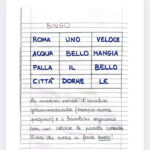 BINGO
ROMA UNO VELOCE
ACQUA BELLO MANGIA
PALLA IL BELLO
CITTÀ DORME LE
grammaticale (nome
e i bambini segnano
con un colore la parola
fare BINGO